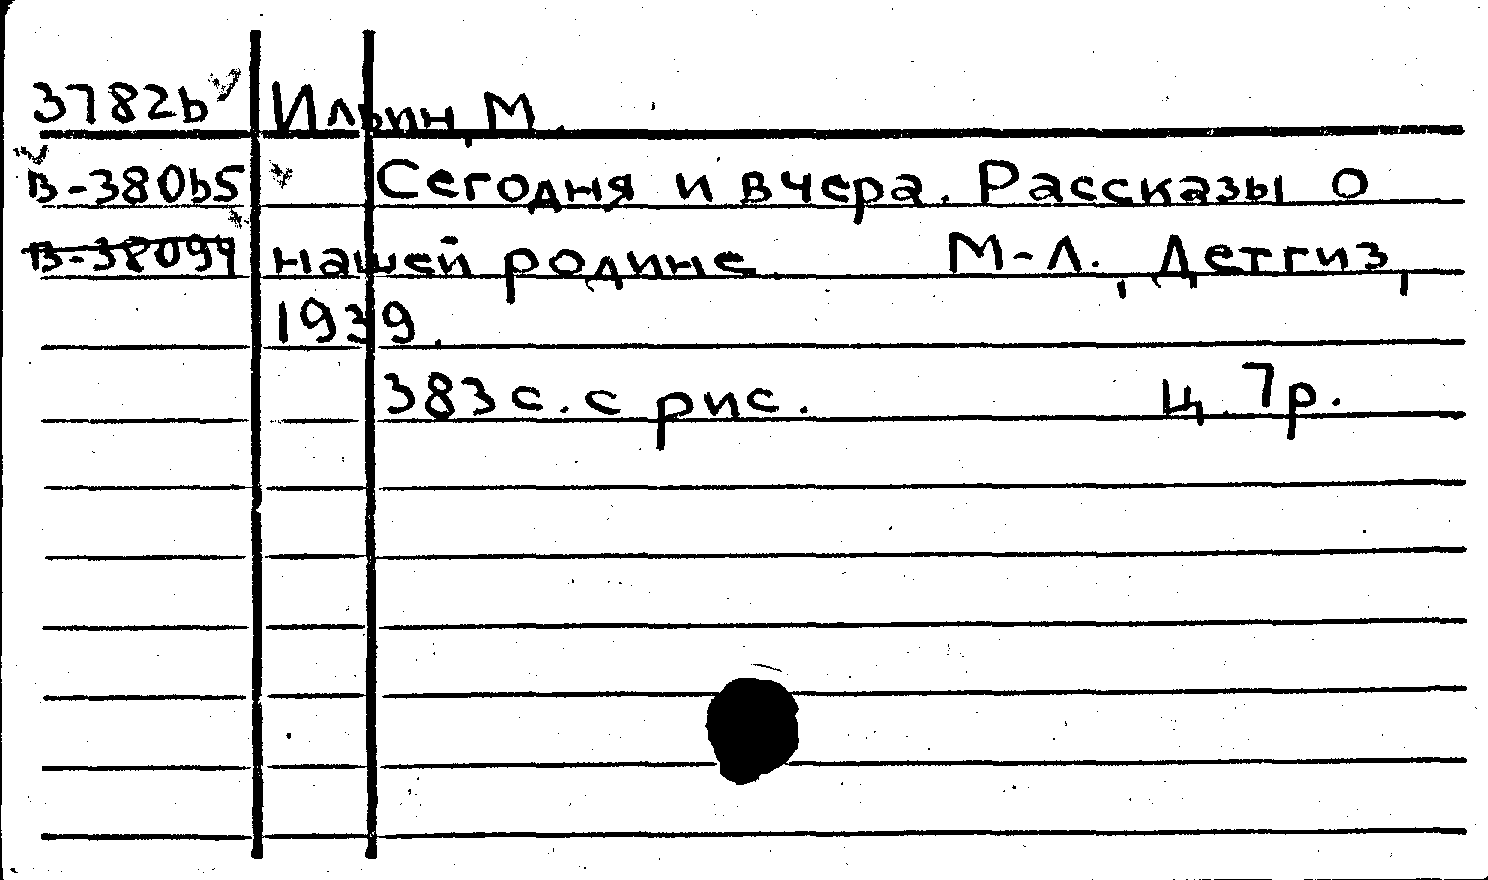 37826 Ильин, М.
В-38065 Сегодня и вчера. Рассказы о
В-38094 нашей родине. М-Л., Детгиз,
1939.
383 с. с рис. ц. 7р.